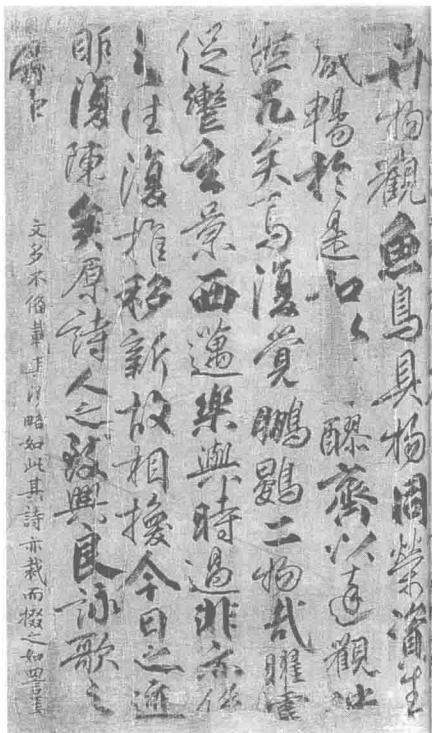 卉物觀魚鳥具物同榮資生
咸暢於是和以醪齊以達觀泱
然兀矣焉復覺鵬鷃二物哉曜靈
促轡玄景西邁樂與時過悲亦係
之往復推移新故相換今日之迹
明復陳矣原詩人之致興良詠歌之
有由
文多不備載其大略如此其詩亦裁而掇之如四言